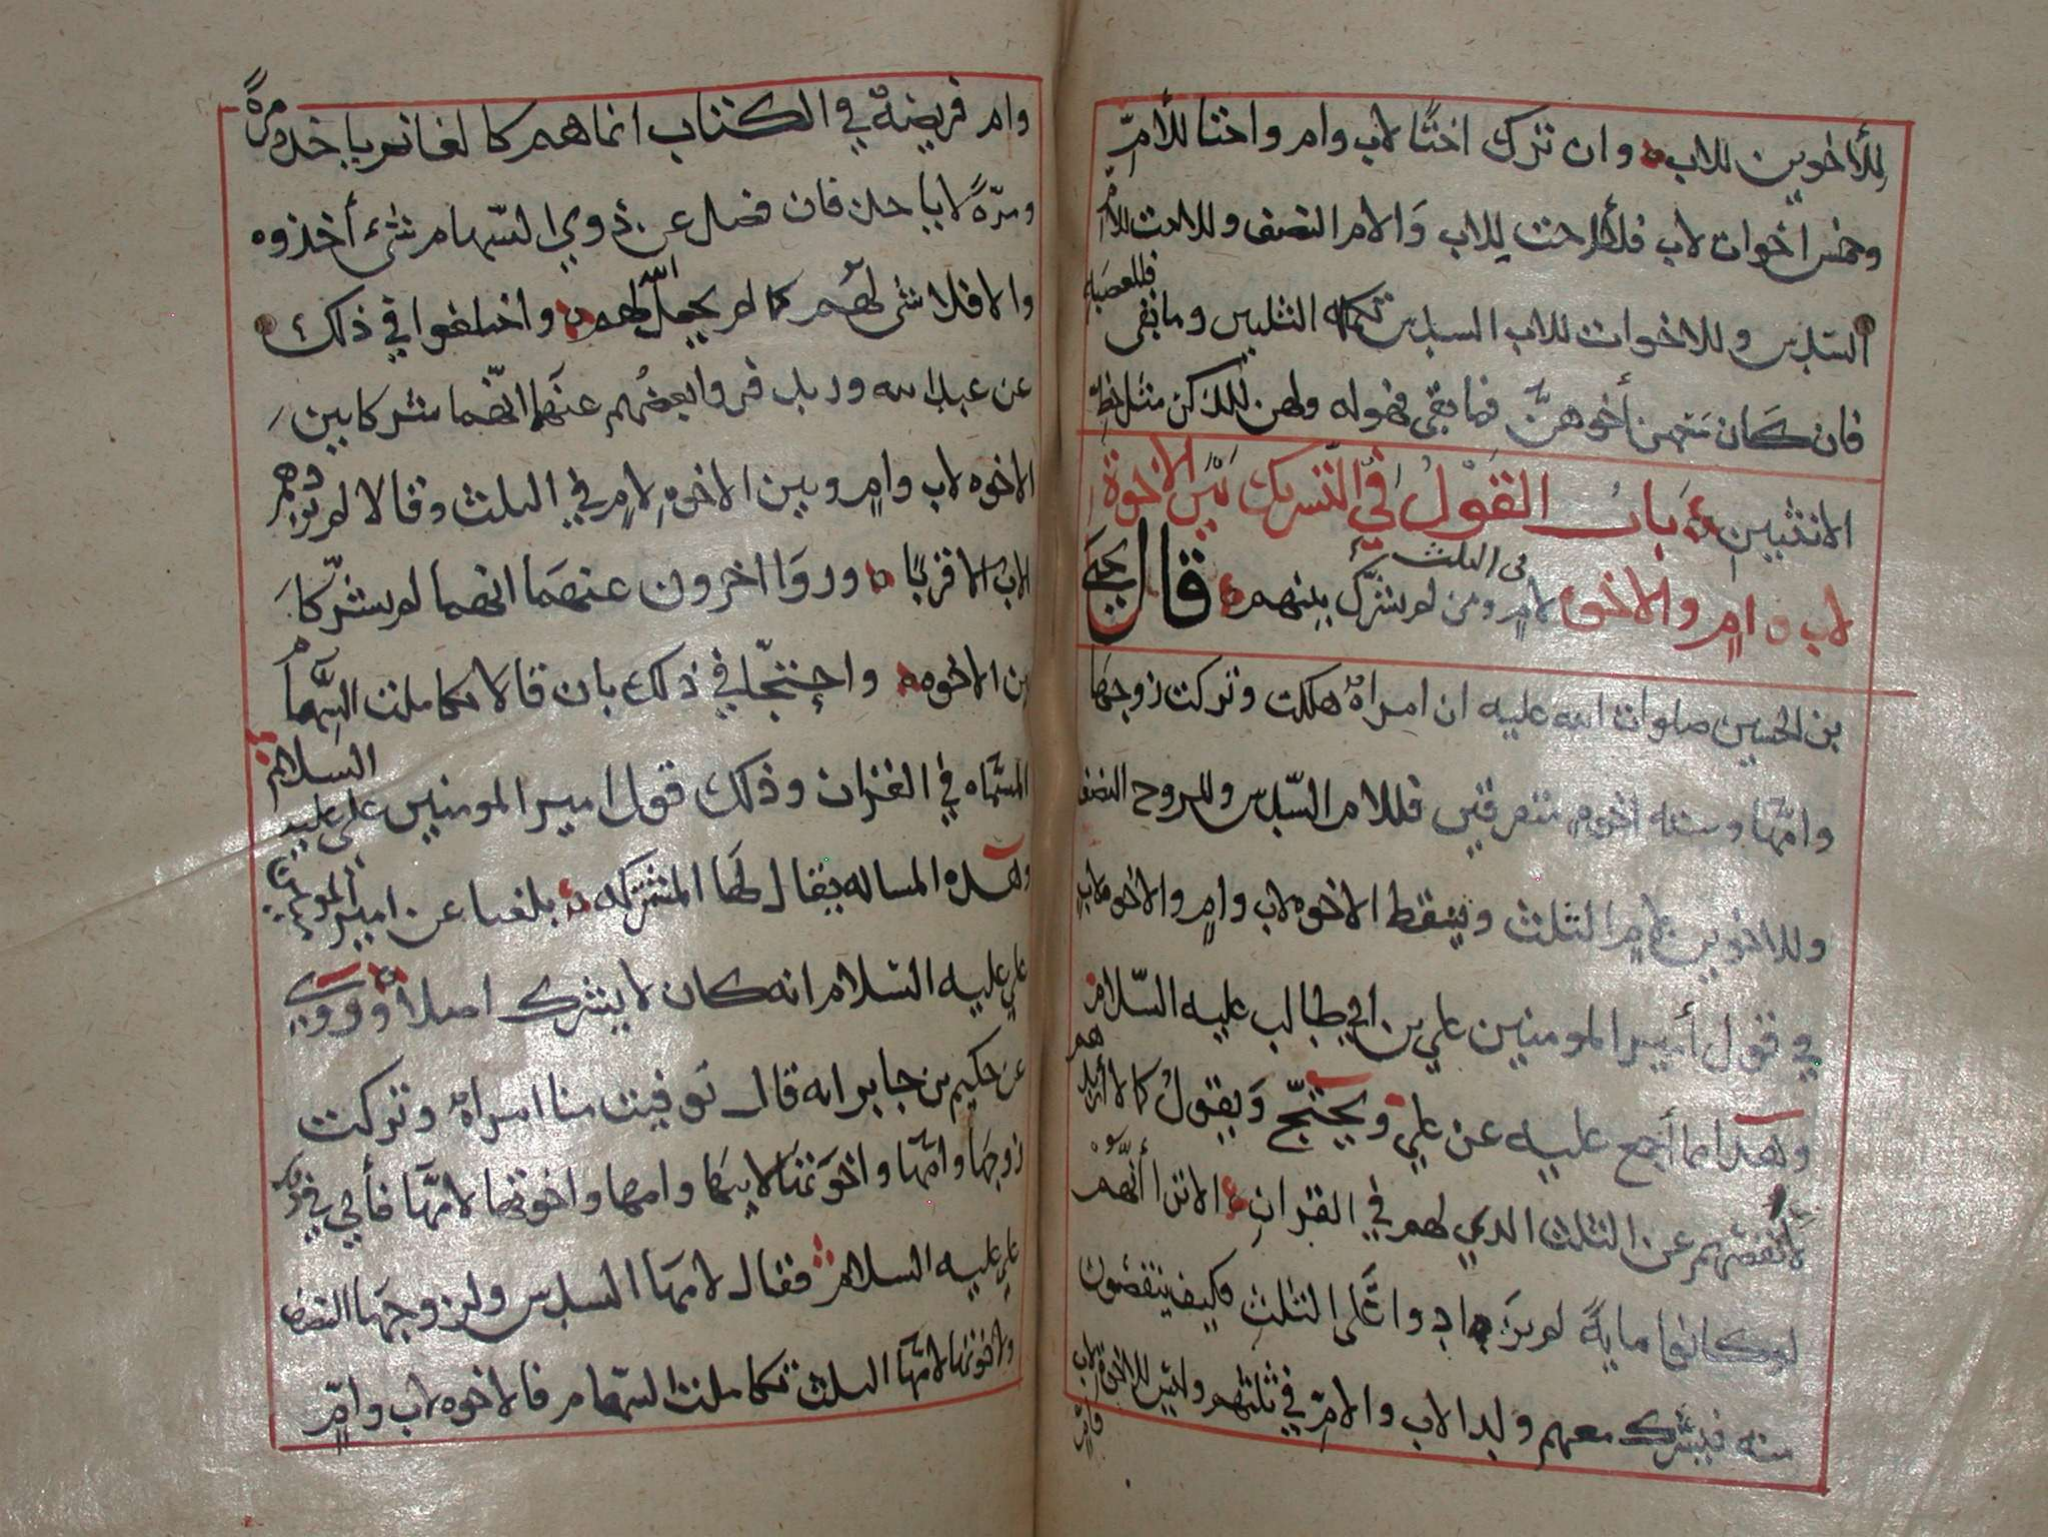 للأخوين للاب وان ترك اختًا لاب وام واختا للأمِّ
وخمس اخوات لاب فللأخت للاب وَالام النصف وللاخت للامّ
السّدس وللاخوات للاب السدس تكمله الثلثين وما بقى فللعصبَه
فان كَان مَعَهن أخوهنَّ فما بقى فهو له ولهن للذكر مثل حظّ
الانثيين بَابُ القَوْلُ فيْ التّشريك بَيْن الاخوة
لاب وامٍ والاخوه لامٍ ومن لم يشرّك بينهم في الثلث قال يحيَى
بن الحسين صلوات الله عليه ان امراةً هلكت وتركت زوجهَا
وامّها وسته اخوهٍ متفرقين فللام السّدس وللزوج النصف
وللاخوين لامٍ الثلث ويسقط الاخوه لاب وامٍ والاخوه لابٍ
في قول أمير المومنين علي بن ابي طالب عليه السّلام
وهذا مما أجمع عليه عن علي ويحتجّ وَيقولُ كما لا أزيدهم
لا أنقصهم عن الثلث الذي لهم في القرانِ الا ترا أنَّهُمْ
لو كانوا مايةً لم يزَادوا عَّلى الثلثِ فكيف ينقصون
منه فيشرك معهم ولد الاب والامِّ في ثلثهم وليس للاخوة لاب وامٍّ
وام فريضةٌ في الكتاب انما هم كا لغانم ياخذ مرهً
ومرّةً لا ياخذ فان فضل عن ذوي السّهام شىء أخذوه
والا فلا شى لهُم كما لم يجعل اللّه لهم واختلفوا في ذلك
عن عبد الله وزيد فروا بعضُهم عنهَما انّهما شركا بين
الاخوه لاب وامٍ وبين الاخوهِ لامٍ في الثلث وقالا لم يزدهم
الاب الا قربًا وروَا اخرون عنهمَا انهما لم يشرّكا
بين الاخوه واحتجّا في ذلك بان قالا تكاملت السِّهَام
المسَّماه في القران وذلك قول امير المومنين علي عليه السلام
وهذه المساله يقال لهَا المشتركه بلغنا عن امير المومنين
علي عليه السّلام انه كان لا يشرك اصلاً وروي
عن حكيم بن جابر انه قال توفيت منا امراةٌ وتركت
زوجهَا وامّهَا واخوَتهَا لابيهَا وامها واخوتها لامّهَا فأتي في ذلك
علي عليه السلام فقال لامهَا السدس ولزوجهَا النصف
ولاخوتها لامّهَا الثلث تكاملت السّهام فالاخوه لاب وامٍّ